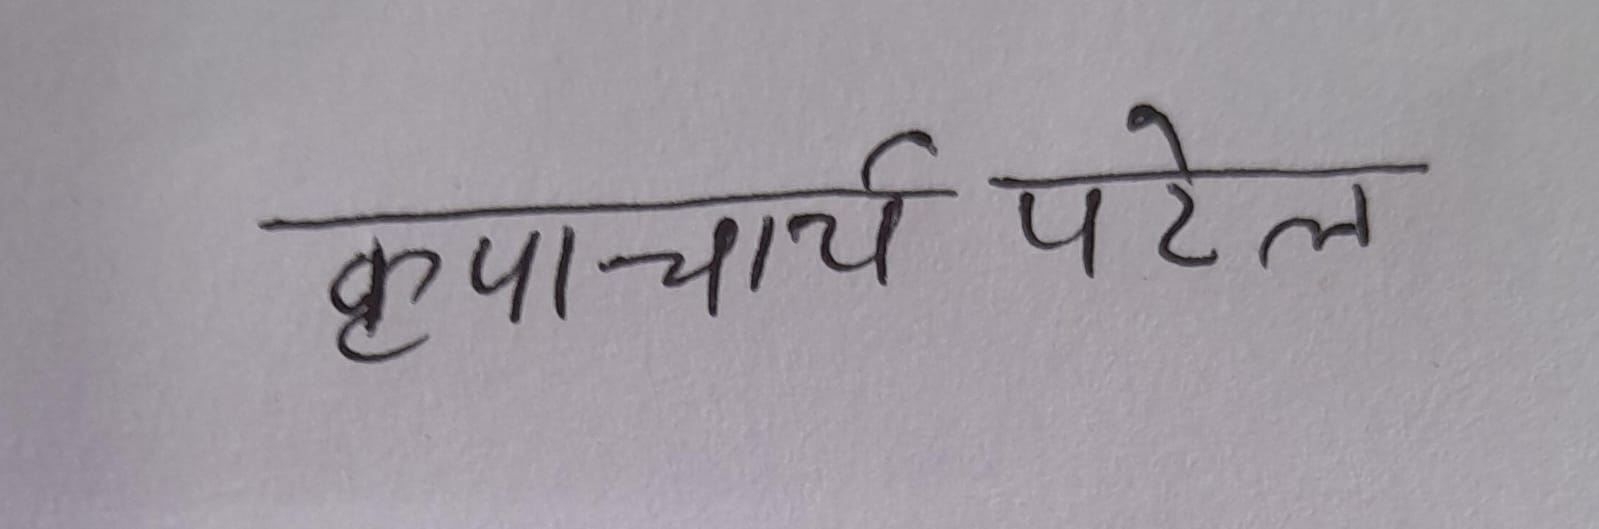 कृपाचार्य पटेल